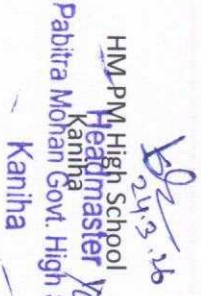 24.3.26
HM PM High School
Headmaster
Kaniha
Pabitra Mohan Govt. High
Kaniha